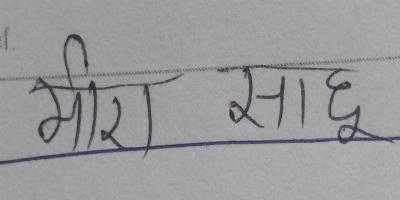 मीरा साहू